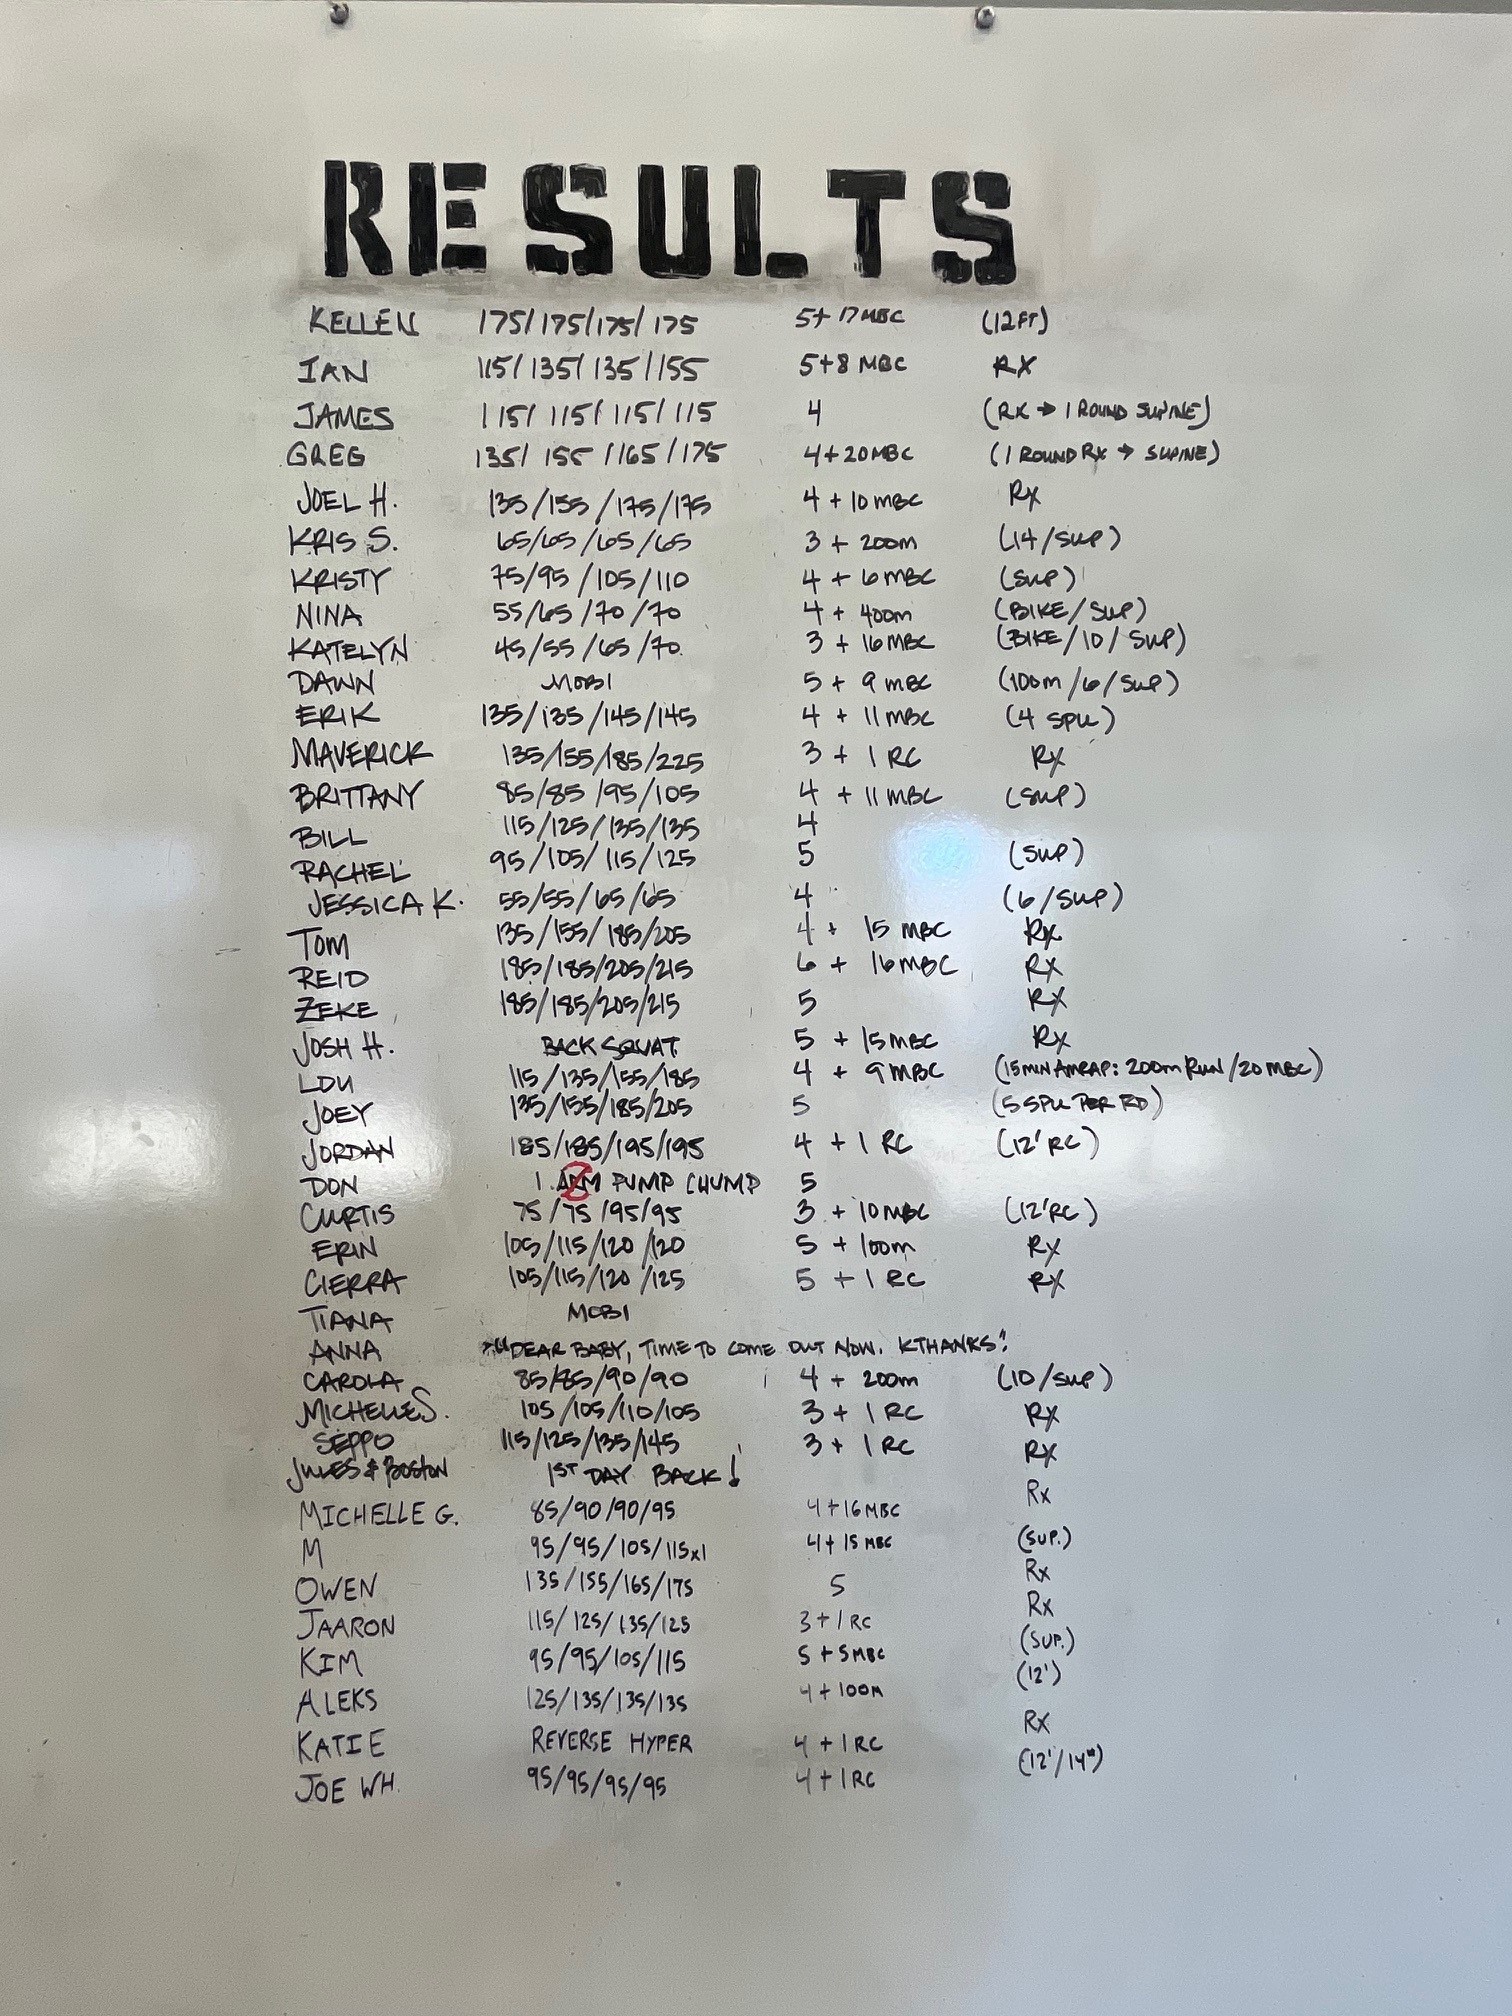 RESULTS
KELLEN 175/175/175/175 5+17MBC (12FT)
IAN 115/135/135/155 5+8 MBC RX
JAMES 115/115/115/115 4 (RX → 1 ROUND SUPINE)
GREG 135/155/165/175 4+20MBC (1 ROUND RX → SUPINE)
JOEL H. 135/155/175/175 4+10MBC RX
KRIS S. 65/65/65/65 3 + 200m (14/SUP)
KRISTY 75/95/105/110 4 + 6MBC (SUP)
NINA 55/65/70/70 4 + 400m (BIKE/SUP)
KATELYN 45/55/65/70 3 + 16MBC (BIKE/10/SUP)
DAWN MOBI 5 + 9 MBC (100m/6/SUP)
ERIK 135/135/145/145 4 + 11 MBC (4 SPU)
MAVERICK 135/155/185/225 3 + 1 RC RX
BRITTANY 85/85/95/105 4 + 11 MBC (SUP)
BILL 115/125/135/135 4
RACHEL 95/105/115/125 5 (SUP)
JESSICA K. 55/55/65/65 4 (6/SUP)
TOM 135/155/185/205 4 + 15 MBC RX
REID 185/185/205/215 6 + 16MBC RX
ZEKE 185/185/205/215 5 RX
JOSH H. BACK SQUAT 5 + 15MBC RX
LOU 115/135/155/185 4 + 9MBC (15MIN AMRAP: 200m RUN/20 MBC)
JOEY 135/155/185/205 5 (5 SPU PER RD)
JORDAN 185/185/195/195 4 + 1 RC (12' RC)
DON 1 ARM PUMP CHUMP 5
CURTIS 75/75/95/95 3 + 10MBC (12'RC)
ERIN 105/115/120/120 5 + 100m RX
CIERRA 105/115/120/125 5 + 1 RC RX
TIANA MOBI
ANNA "DEAR BABY, TIME TO COME OUT NOW. KTHANKS."
CAROLA 85/85/90/90 4 + 200m (10/SUP)
MICHELLE S. 105/105/110/105 3 + 1 RC RX
SEPPO 115/125/135/145 3 + 1 RC RX
JULES & BOSTON 1ST DAY BACK!
MICHELLE G. 85/90/90/95 4+16MBC RX
M 95/95/105/115x1 4+15 MBC (SUP.)
OWEN 135/155/165/175 5 RX
JAARON 115/125/135/125 3+1 RC RX
KIM 95/95/105/115 5+5MBC (SUP.)
ALEKS 125/135/135/135 4+100M (12')
KATIE REVERSE HYPER 4+1RC RX
JOE WH. 95/95/95/95 4+1RC (12'/14#)